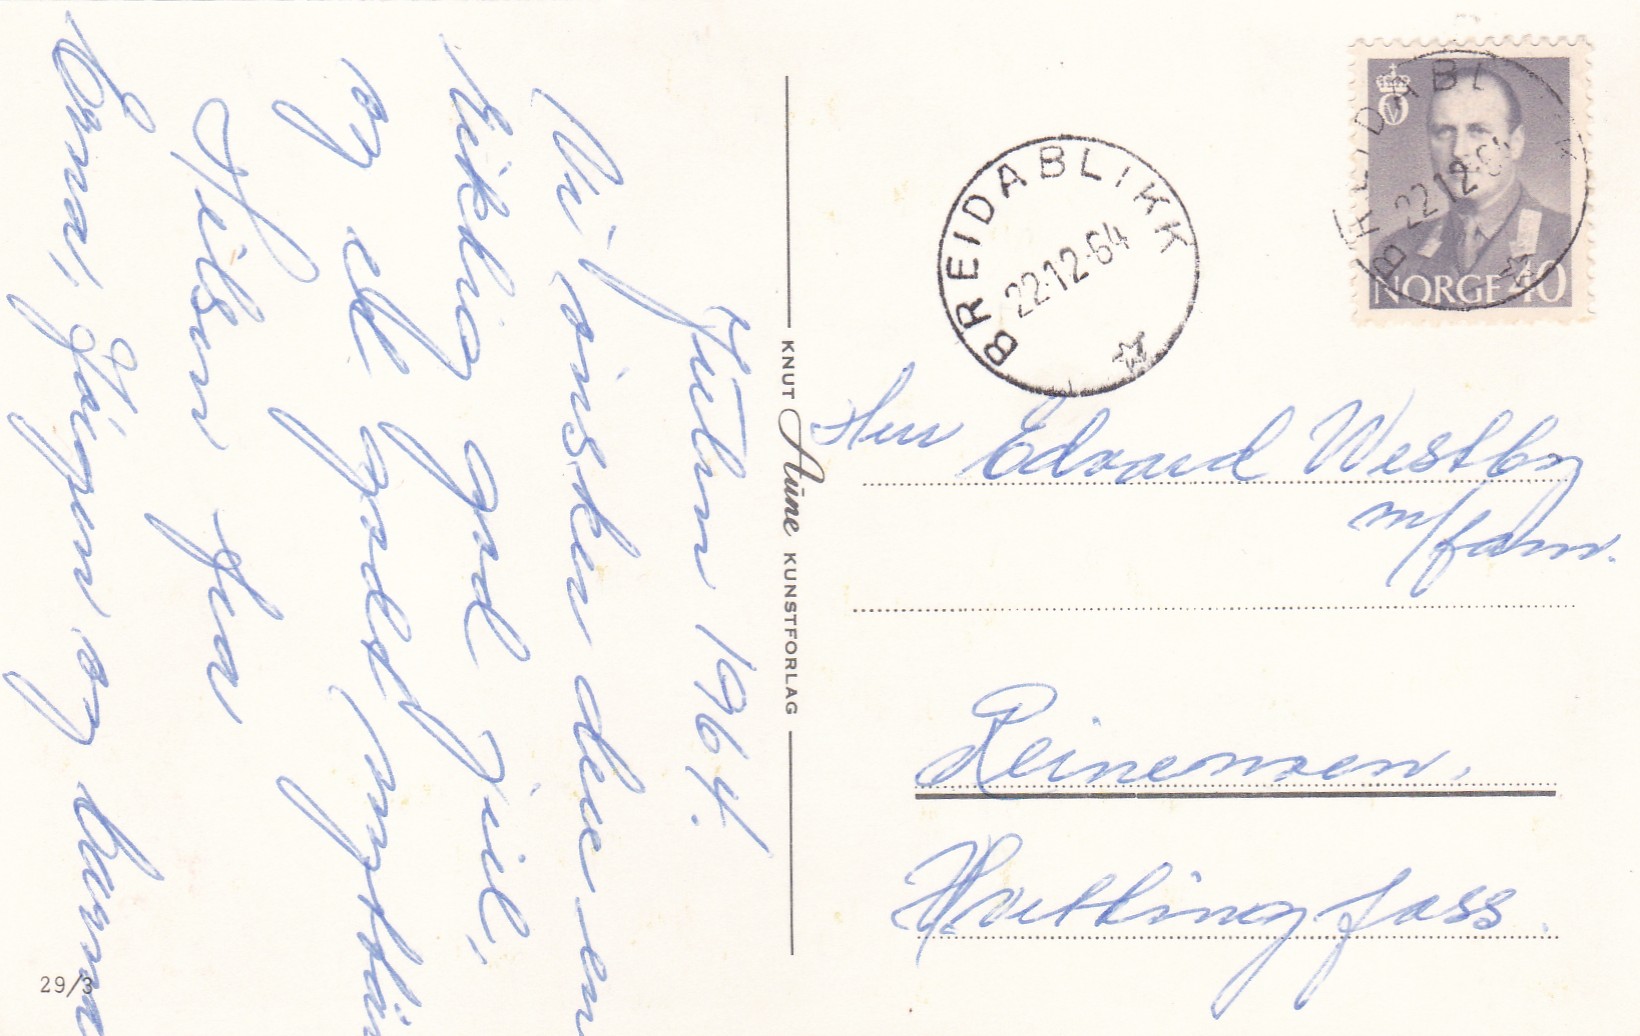 Julen 1964.
Vi ønsker dere en
riktig god jul,
og et godt nyttår
Hilsen fra
Erna, Jørgen og barna
KNUT Aune KUNSTFORLAG
29/3
BREIDABLIKK
22.12.64
BREIDABLIKK
22.12.64
NORGE 40
Herr Edvard Westby
m/fam.
Reinemoen.
Hvitlingfoss.